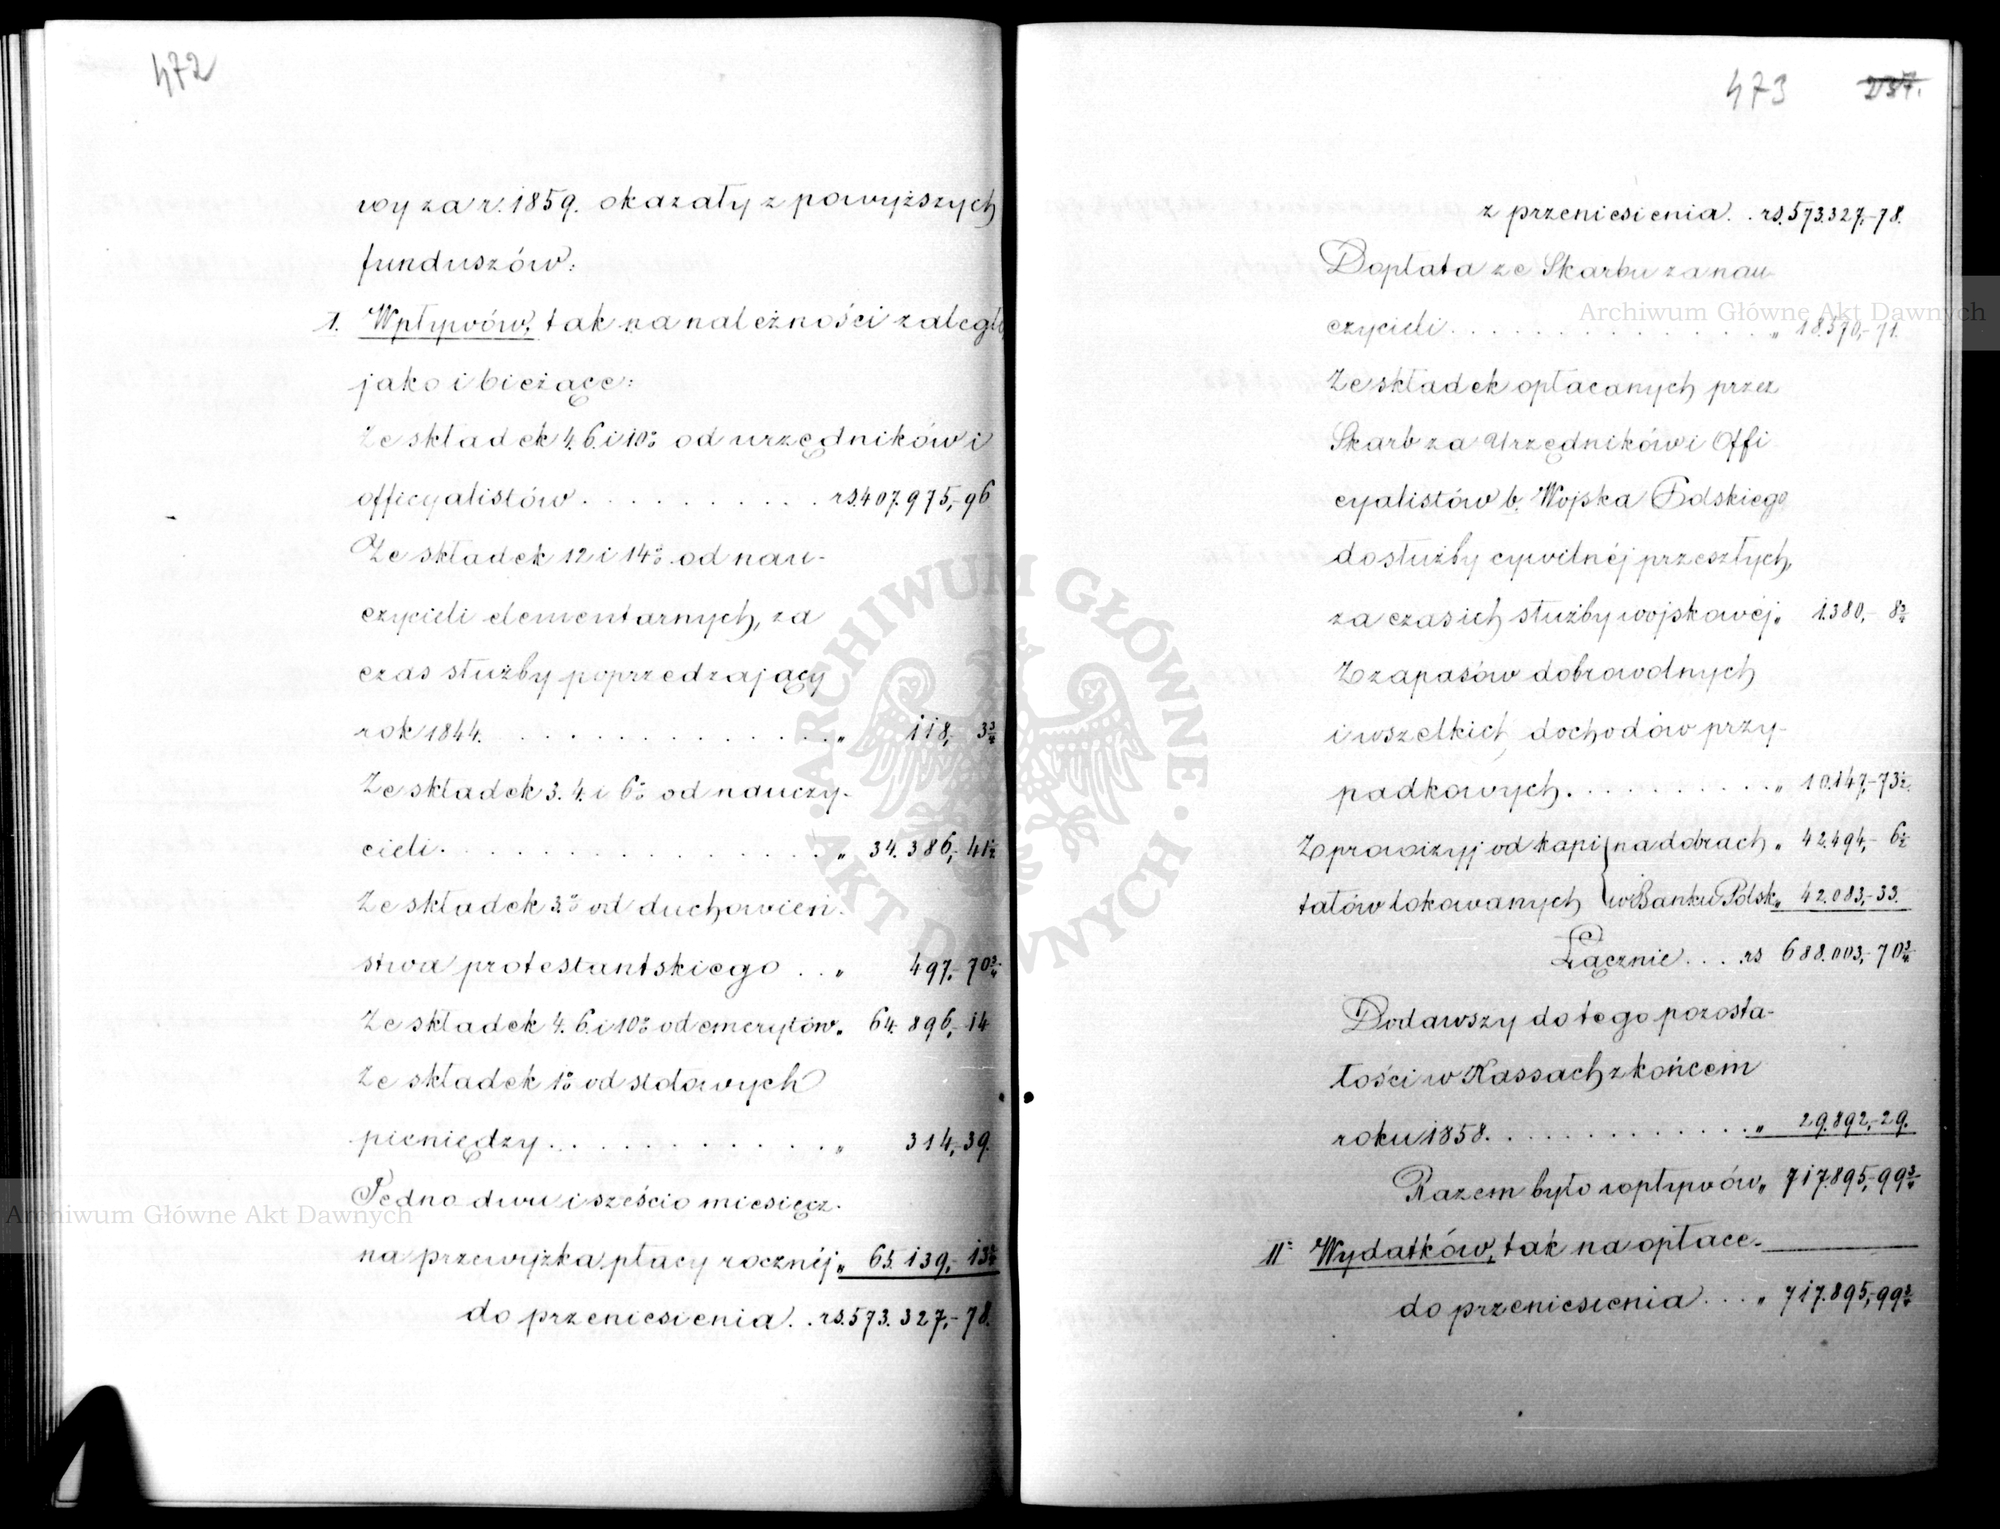 472
wy za r. 1859. okazały z powyższych
funduszów:
I. Wpływów, tak na należności zaległe,
jako i bieżące:
Ze składek 4. 6. i 10% od urzędników i
officyalistów . . . . . . . . . . rs. 407.975,-96
Ze składek 12 i 14% od nau-
czycieli elementarnych, za
czas służby poprzedzający
rok 1844. . . . . . . . . . . . . . . „ 118,- 3¾
Ze składek 3. 4. i 6% od nauczy-
cieli . . . . . . . . . . . . . . . „ 34.386,- 41½
Ze składek 3% od duchowień-
stwa protestantskiego . . „ 497,- 70¾
Ze składek 4. 6. i 10% od emerytów „ 64.896,- 14
Ze składek 1% od stołowych
pieniędzy . . . . . . . . . . . . „ 314,- 39.
Jedno dwu i sześcio miesięcz-
na przewyżka płacy rocznéj „ 65.139,- 13¾
do przeniesienia . . rs. 573.327,- 78.
473 237.
z przeniesienia . . rs. 573.327,-78.
Dopłata ze Skarbu za nau-
czycieli . . . . . . . . . . . . . . . „ 18.570,- 71.
Ze składek opłacanych przez
Skarb za Urzędników i Offi-
cyalistów b. Wojska Polskiego
do służby cywilnéj przeszłych,
za czas ich służby wojskowéj „ 1.380,- 8¾
Z zapasów dobrowolnych
i wszelkich dochodów przy-
padkowych . . . . . . . . . . „ 10.147,-73½
Z prowizyj od kapi- { na dobrach „ 42.494,- 6½
tałów lokowanych { w Banku Polsk. „ 42.083,-33.
Łącznie . . . . rs 688.003,- 70¾
Dodawszy do tego pozosta-
łości w Kassach z końcem
roku 1858. . . . . . . . . . . . . . „ 29.892,-29.
Razem było wpływów „ 717.895,-99¾
II. Wydatków, tak na opłace-
do przeniesienia . . . „ 717.895,-99¾
Archiwum Główne Akt Dawnych
Archiwum Główne Akt Dawnych
· ARCHIWUM GŁÓWNE · AKT DAWNYCH